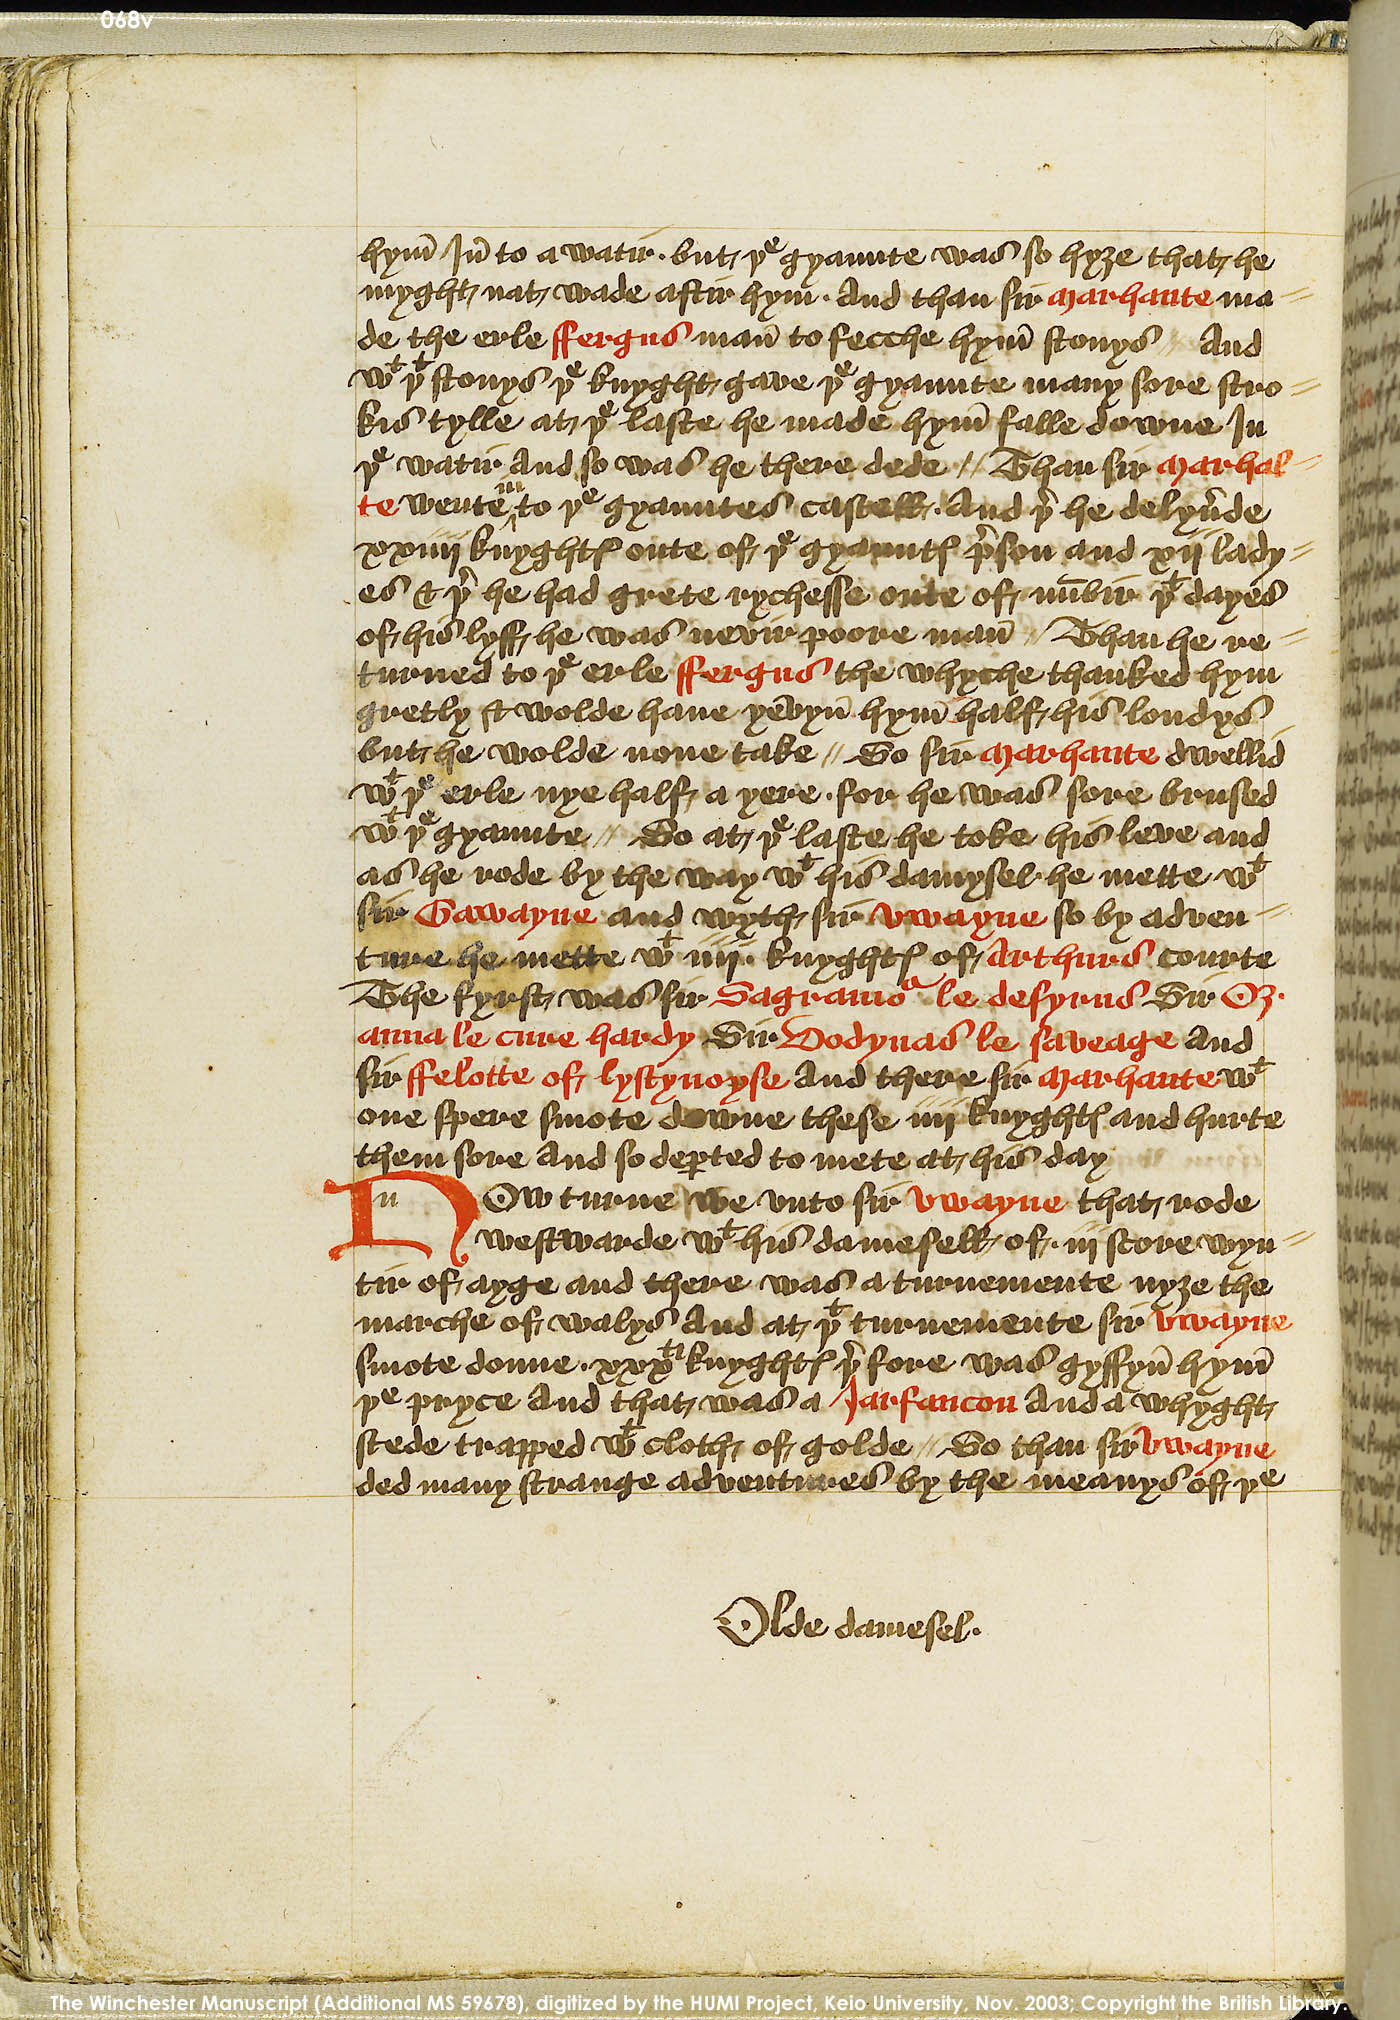 068v
hym̄ Jn̄ to a watir · but þͤ gyaunte was so hyȝe that he
myght nat wade aftir hym · And than sir Marhaute ma=
de the erle ffergus man̄ to fecche hym̄ stonys // And
wᵗ þᵗ stonys þͤ knyght gave þͤ gyaunte many sore stro=
kis tylle at þͤ laste he made hym̄ falle downe Jn
þͤ watir And so was he there dede // Than sir Marhal=
te wente ^in to þͤ gyauntes castell · And þ̉ he delyũde
xxiiij knyghtꝭ oute of þͤ gyauntꝭ p̉son and xij lady=
es & þ̉ he had grete rychesse oute of nūbir þᵗ dayes
of his lyff he was nevir poore man̄ // Than he re=
turned to þͤ erle ffergus the whyche thanked hym
gretly & wolde haue yēvyn̄ hym̄ half his londys
but he wolde none take // So sir Marhaute dwellid
wᵗ þͤ erle nye half a yere · for he was sore brused
wᵗ þͤ gyaunte // So at þͤ laste he toke his leve and
as he rode by the way wᵗ his damysel he mette wᵗ
sir Gawayne and wyth sir Vwayne so by adven=
ture he mette wᵗ iiij · knyghtꝭ of Arthurs courte
The fyrst was sir Sagramoͬ le desyrus Sir Oȝ·
anna le cure hardy Sir Dodynas le saveage And
sir ffelotte of lystynoyse And there sir Marhaute wᵗ
one spere smote downe these iiij knyghtꝭ and hurte
them sore And so deꝑted to mete at his day
n
NOw turne we vnto sir Vwayne that rode
westwarde wᵗ his damesell of · iij score wyn=
tir of ayge and there was a turnemente nyȝe the
marche of walys And at þᵗ turnemente sir Vwayne
smote doune · xxxᵗⁱ knyghtꝭ þ̉fore was gyffyn̄ hym̄
þͤ pryce And that was a Jarfaucon And a whyght
stede trapped wᵗ cloth of golde // So than sir Vwayne
ded many strange adventures by the meanys of þͤ
Olde damesel·
The Winchester Manuscript (Additional MS 59678), digitized by the HUMI Project, Keio University, Nov. 2003; Copyright the British Library.